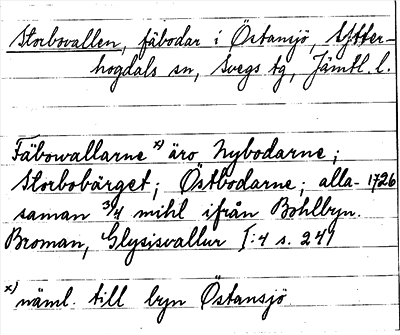 Storbovallen, fäbodar i Östansjö, Ytter-
hogdals sn, Svegs tg, Jämtl. l.
Fäbowallarne x) äro Nybodarne;
Storbobärget; Östbodarne; alla- 1726
saman 3/4 mihl ifrån Bohlbyn.
Broman, Glysisvallur I:4 s. 241
x) näml. till byn Östansjö